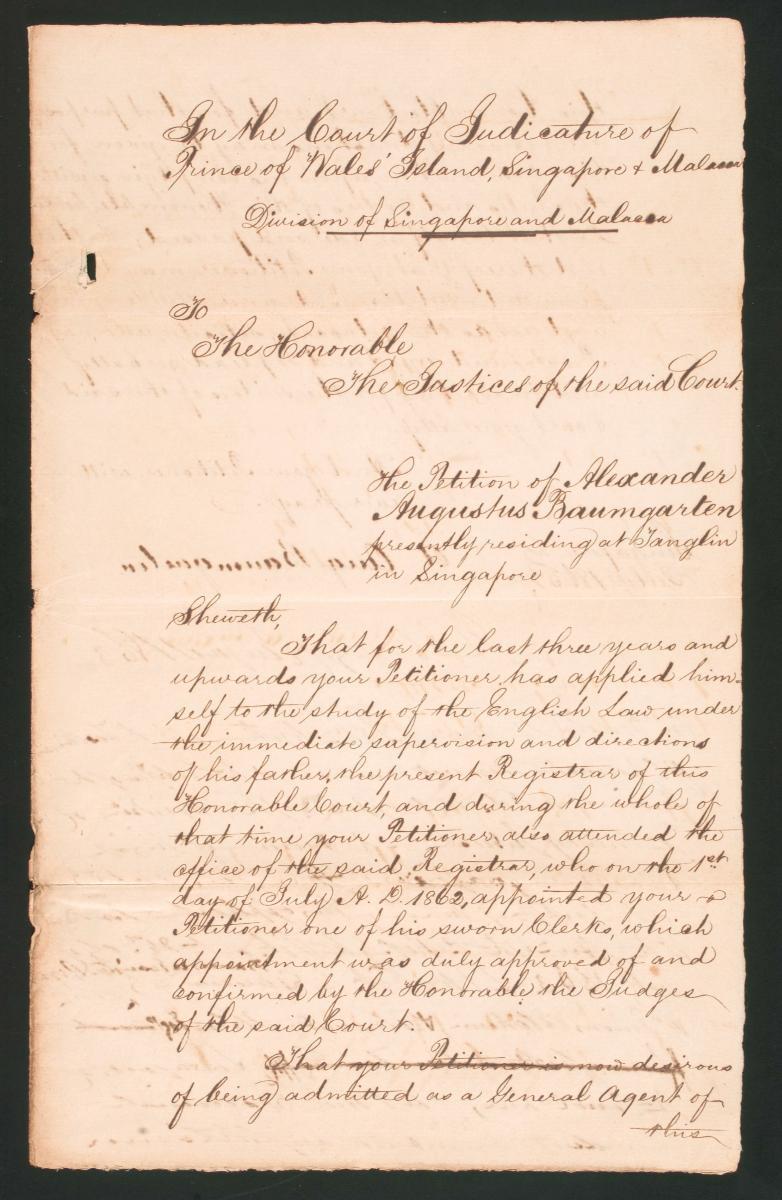 In the Court of Judicature of
Prince of Wales' Island, Singapore & Malacca
Division of Singapore and Malacca
To
The Honorable
The Justices of the said Court.
The Petition of Alexander
Augustus Baumgarten
presently residing at Tanglin
in Singapore
Sheweth,
That for the last three years and
upwards your Petitioner has applied him-
self to the study of the English Law under
the immediate supervision and directions
of his father, the present Registrar of this
Honorable Court, and during the whole of
that time your Petitioner also attended the
office of the said Registrar, who on the 1st
day of July A.D. 1862, appointed your
Petitioner one of his sworn Clerks, which
appointment was duly approved of and
confirmed by the Honorable the Judges
of the said Court.
That your Petitioner is now desirous
of being admitted as a General Agent of
this